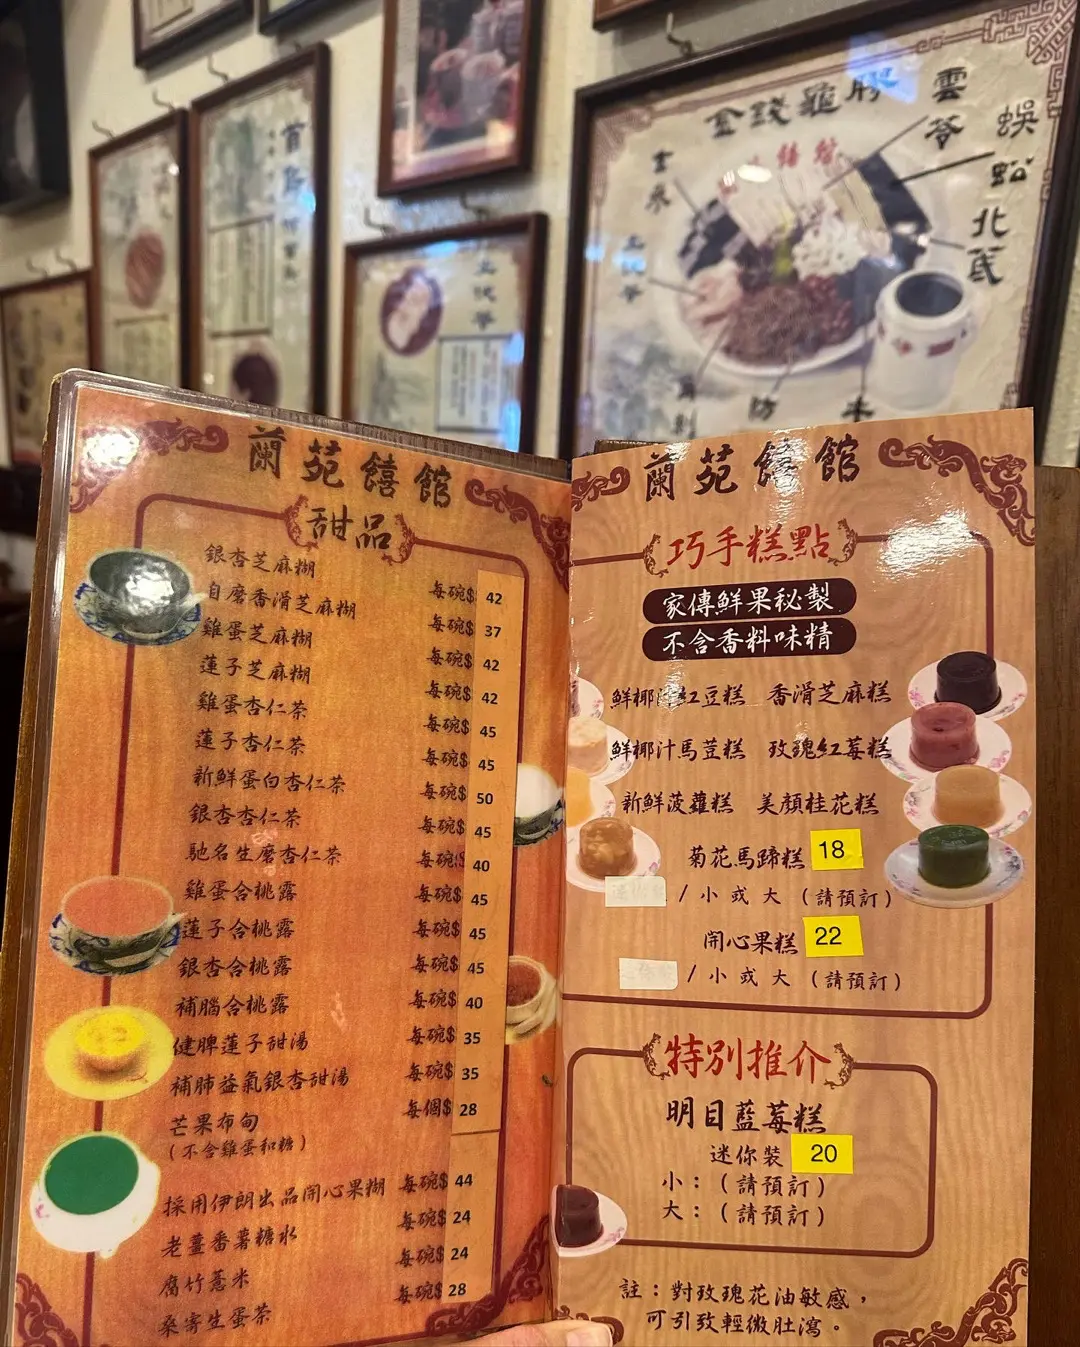 金錢龜膠
雲苓
蜈蚣
北芪
蘭苑饎館
甜品
銀杏芝麻糊 每碗$ 42
自磨香滑芝麻糊 每碗$ 37
雞蛋芝麻糊 每碗$ 42
蓮子芝麻糊 每碗$ 42
雞蛋杏仁茶 每碗$ 45
蓮子杏仁茶 每碗$ 45
新鮮蛋白杏仁茶 每碗$ 50
銀杏杏仁茶 每碗$ 45
馳名生磨杏仁茶 每碗$ 40
雞蛋合桃露 每碗$ 45
蓮子合桃露 每碗$ 45
銀杏合桃露 每碗$ 45
補腦合桃露 每碗$ 40
健脾蓮子甜湯 每碗$ 35
補肺益氣銀杏甜湯 每碗$ 35
芒果布甸 每個$ 28
(不含雞蛋和糖)
採用伊朗出品開心果糊 每碗$ 44
老薑番薯糖水 每碗$ 24
腐竹薏米 每碗$ 24
桑寄生蛋茶 每碗$ 28
蘭苑饎館
巧手糕點
家傳鮮果秘製
不含香料味精
鮮椰汁紅豆糕 香滑芝麻糕
鮮椰汁馬荳糕 玫瑰紅莓糕
新鮮菠蘿糕 美顏桂花糕
菊花馬蹄糕 18
/ 小 或 大 (請預訂)
開心果糕 22
/ 小 或 大 (請預訂)
特別推介
明目藍莓糕
迷你裝 20
小：(請預訂)
大：(請預訂)
註：對玫瑰花油敏感，
可引致輕微肚瀉。